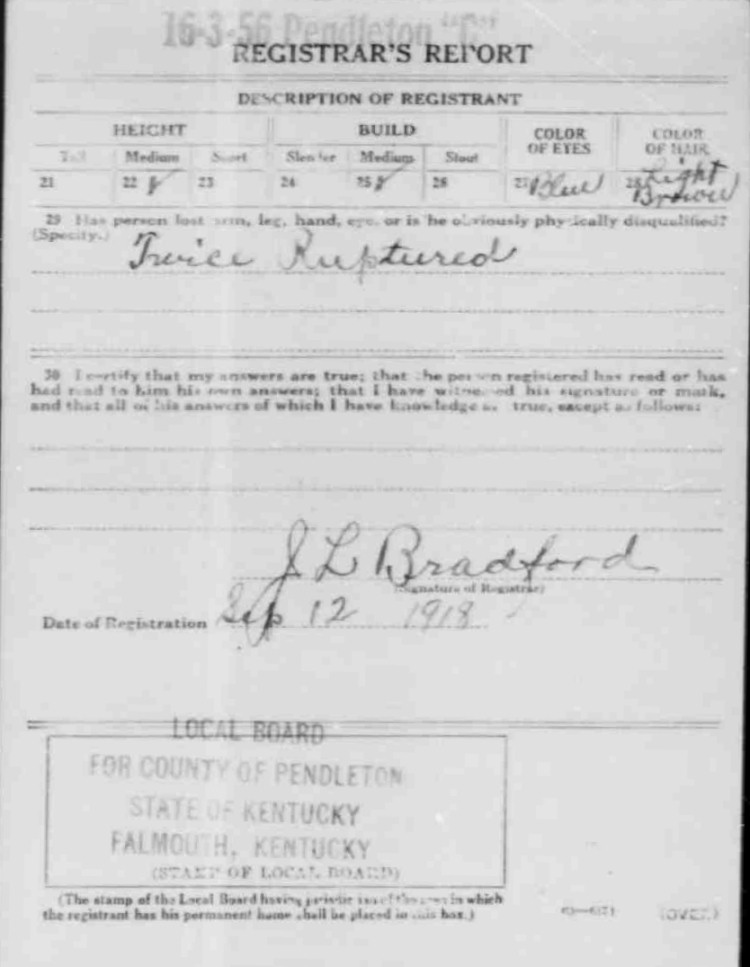 16-3-56 Pendleton "C"
REGISTRAR'S REPORT
DESCRIPTION OF REGISTRANT
HEIGHT BUILD COLOR OF EYES COLOR OF HAIR
Tall Medium Short Slender Medium Stout
21 22 ✓ 23 24 25 ✓ 26 27 Blue 28 Light Brown
29 Has person lost arm, leg, hand, eye, or is he obviously physically disqualified?
(Specify.)
Twice Ruptured
30 I certify that my answers are true; that the person registered has read or has
had read to him his own answers; that I have witnessed his signature or mark,
and that all of his answers of which I have knowledge are true, except as follows:
J L Bradford
(Signature of Registrar)
Date of Registration Sep 12 1918
LOCAL BOARD
FOR COUNTY OF PENDLETON
STATE OF KENTUCKY
FALMOUTH, KENTUCKY
(STAMP OF LOCAL BOARD)
(The stamp of the Local Board having jurisdiction of the area in which
the registrant has his permanent home shall be placed in this box.)
(OVER)